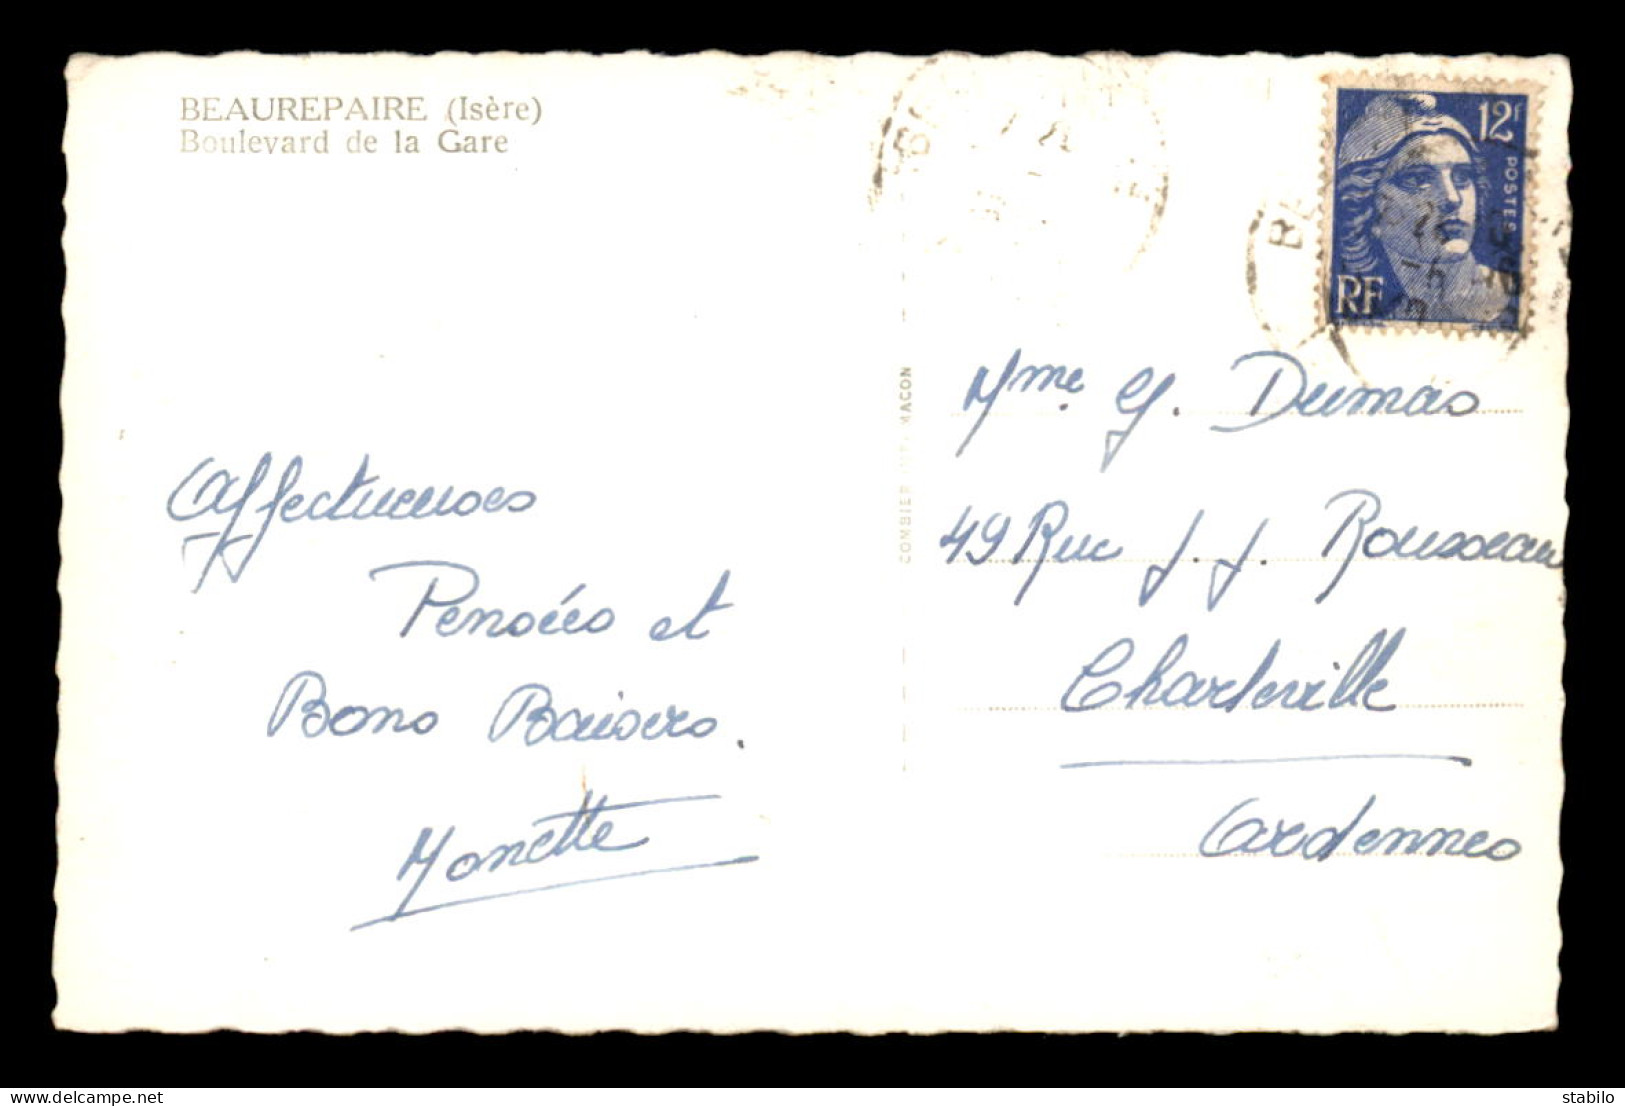 BEAUREPAIRE (Isère)
Boulevard de la Gare
12f
POSTES
RF
COMBIER IMP. MACON
Affectueuses
Pensées et
Bons Baisers.
Monette
Mme G. Dumas
49 Rue J. J. Rousseau
Charleville
Ardennes
delcampe.net
stabilo